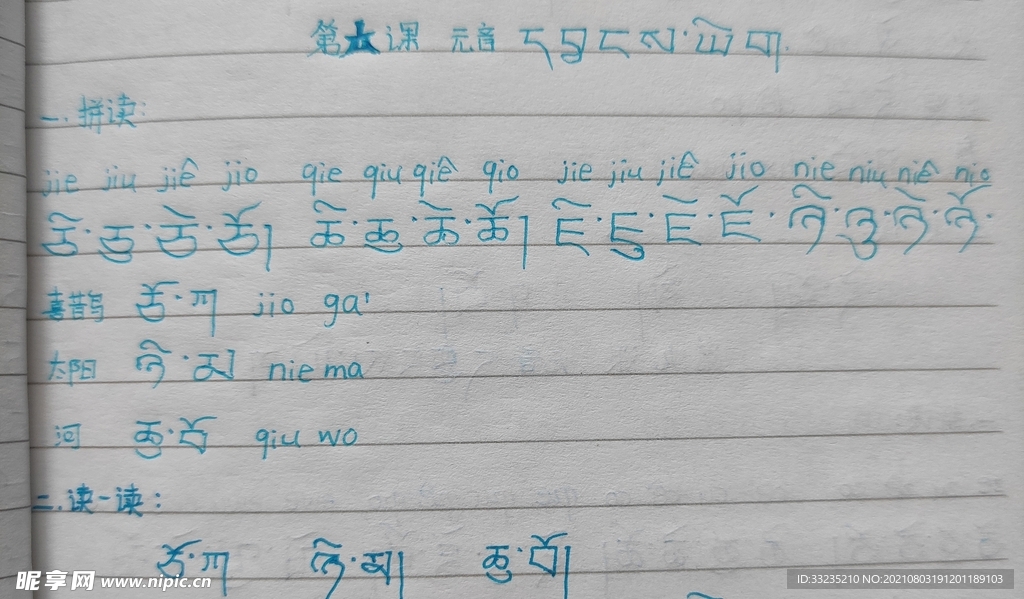 第六课 元音 དབྱངས་ཡིག
一.拼读:
jie jiu jiê jio qie qiu qiê qio jie jiu jiê jio nie niu niê nio
ཅི་ཅུ་ཅེ་ཅོ། ཆི་ཆུ་ཆེ་ཆོ། ཇི་ཇུ་ཇེ་ཇོ་ཉི་ཉུ་ཉེ་ཉོ་
喜鹊鸟 ཅོ་ཀ jio ga'
太阳 ཉི་མ། nie ma
河 ཆུ་བོ qiu wo
二.读一读:
ཅོ་ཀ ཉི་མ། ཆུ་བོ།
昵享网 www.nipic.cn
ID:33235210 NO:20210803191201189103